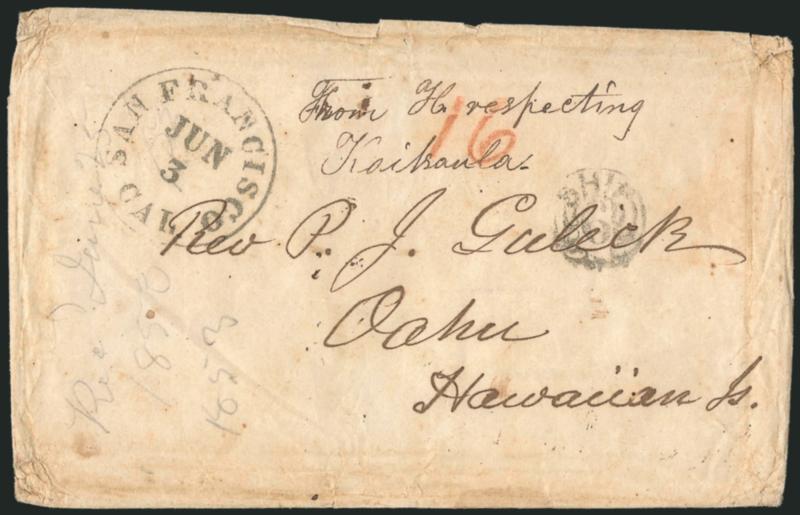 SAN FRANCISCO
CAL.
JUN
3
From H. respecting
Kaikaula.
16
SHIP
Rev P. J. Gulick
Oahu
Hawaiian Is.
Rec'd June
1850